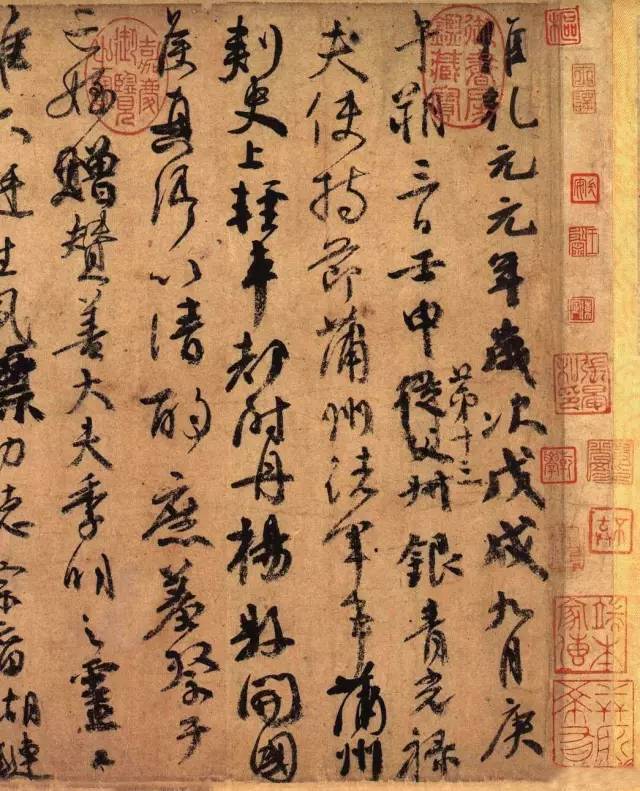 維乾元元年歲次戊戌九月庚
午朔三日壬申第十三叔銀青光祿
夫使持節蒲州諸軍事蒲州
刺史上輕車都尉丹楊縣開國
侯真卿以清酌庶羞祭于
亡姪贈贊善大夫季明之靈曰
惟爾挺生夙標幼德宗廟瑚璉
嘉慶御覽之寶
御書房鑑藏寶
樞
張晏私印